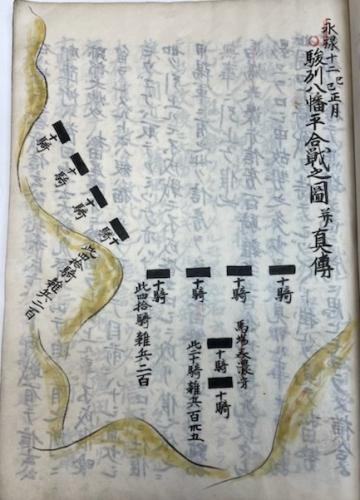 永禄十二己巳正月
駿列八幡平合戦之圖 并 真傳
十騎
十騎
十騎
十騎
馬場美濃守
十騎
十騎
此二十騎雑兵百
此四拾騎雑兵二百
十騎
十騎
十騎
十騎
此四拾騎雑兵二百